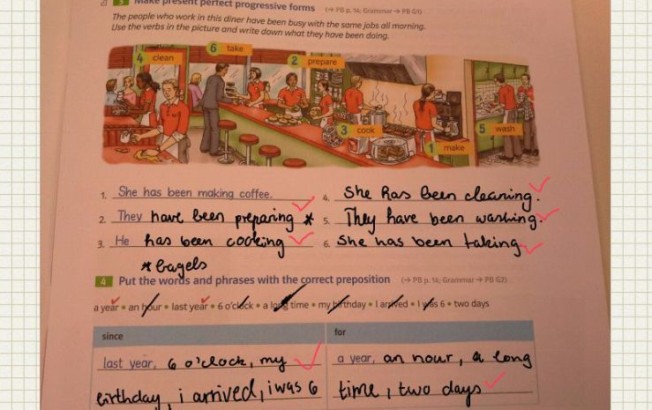 3 Make present perfect progressive forms (→ PB p. 14, Grammar → PB G1)
The people who work in this diner have been busy with the same jobs all morning.
Use the verbs in the picture and write down what they have been doing.
6 take
4 clean
2 prepare
3 cook
5 wash
1 make
1. She has been making coffee.
2. They have been preparing *
3. He has been cooking
* bagels
4. She has been cleaning.
5. They have been washing.
6. She has been taking
4 Put the words and phrases with the correct preposition (→ PB p. 14, Grammar → PB G2)
a year • an hour • last year • 6 o'clock • a long time • my birthday • I arrived • I was 6 • two days
since
for
last year, 6 o'clock, my
birthday, i arrived, i was 6
a year, an hour, a long
time, two days